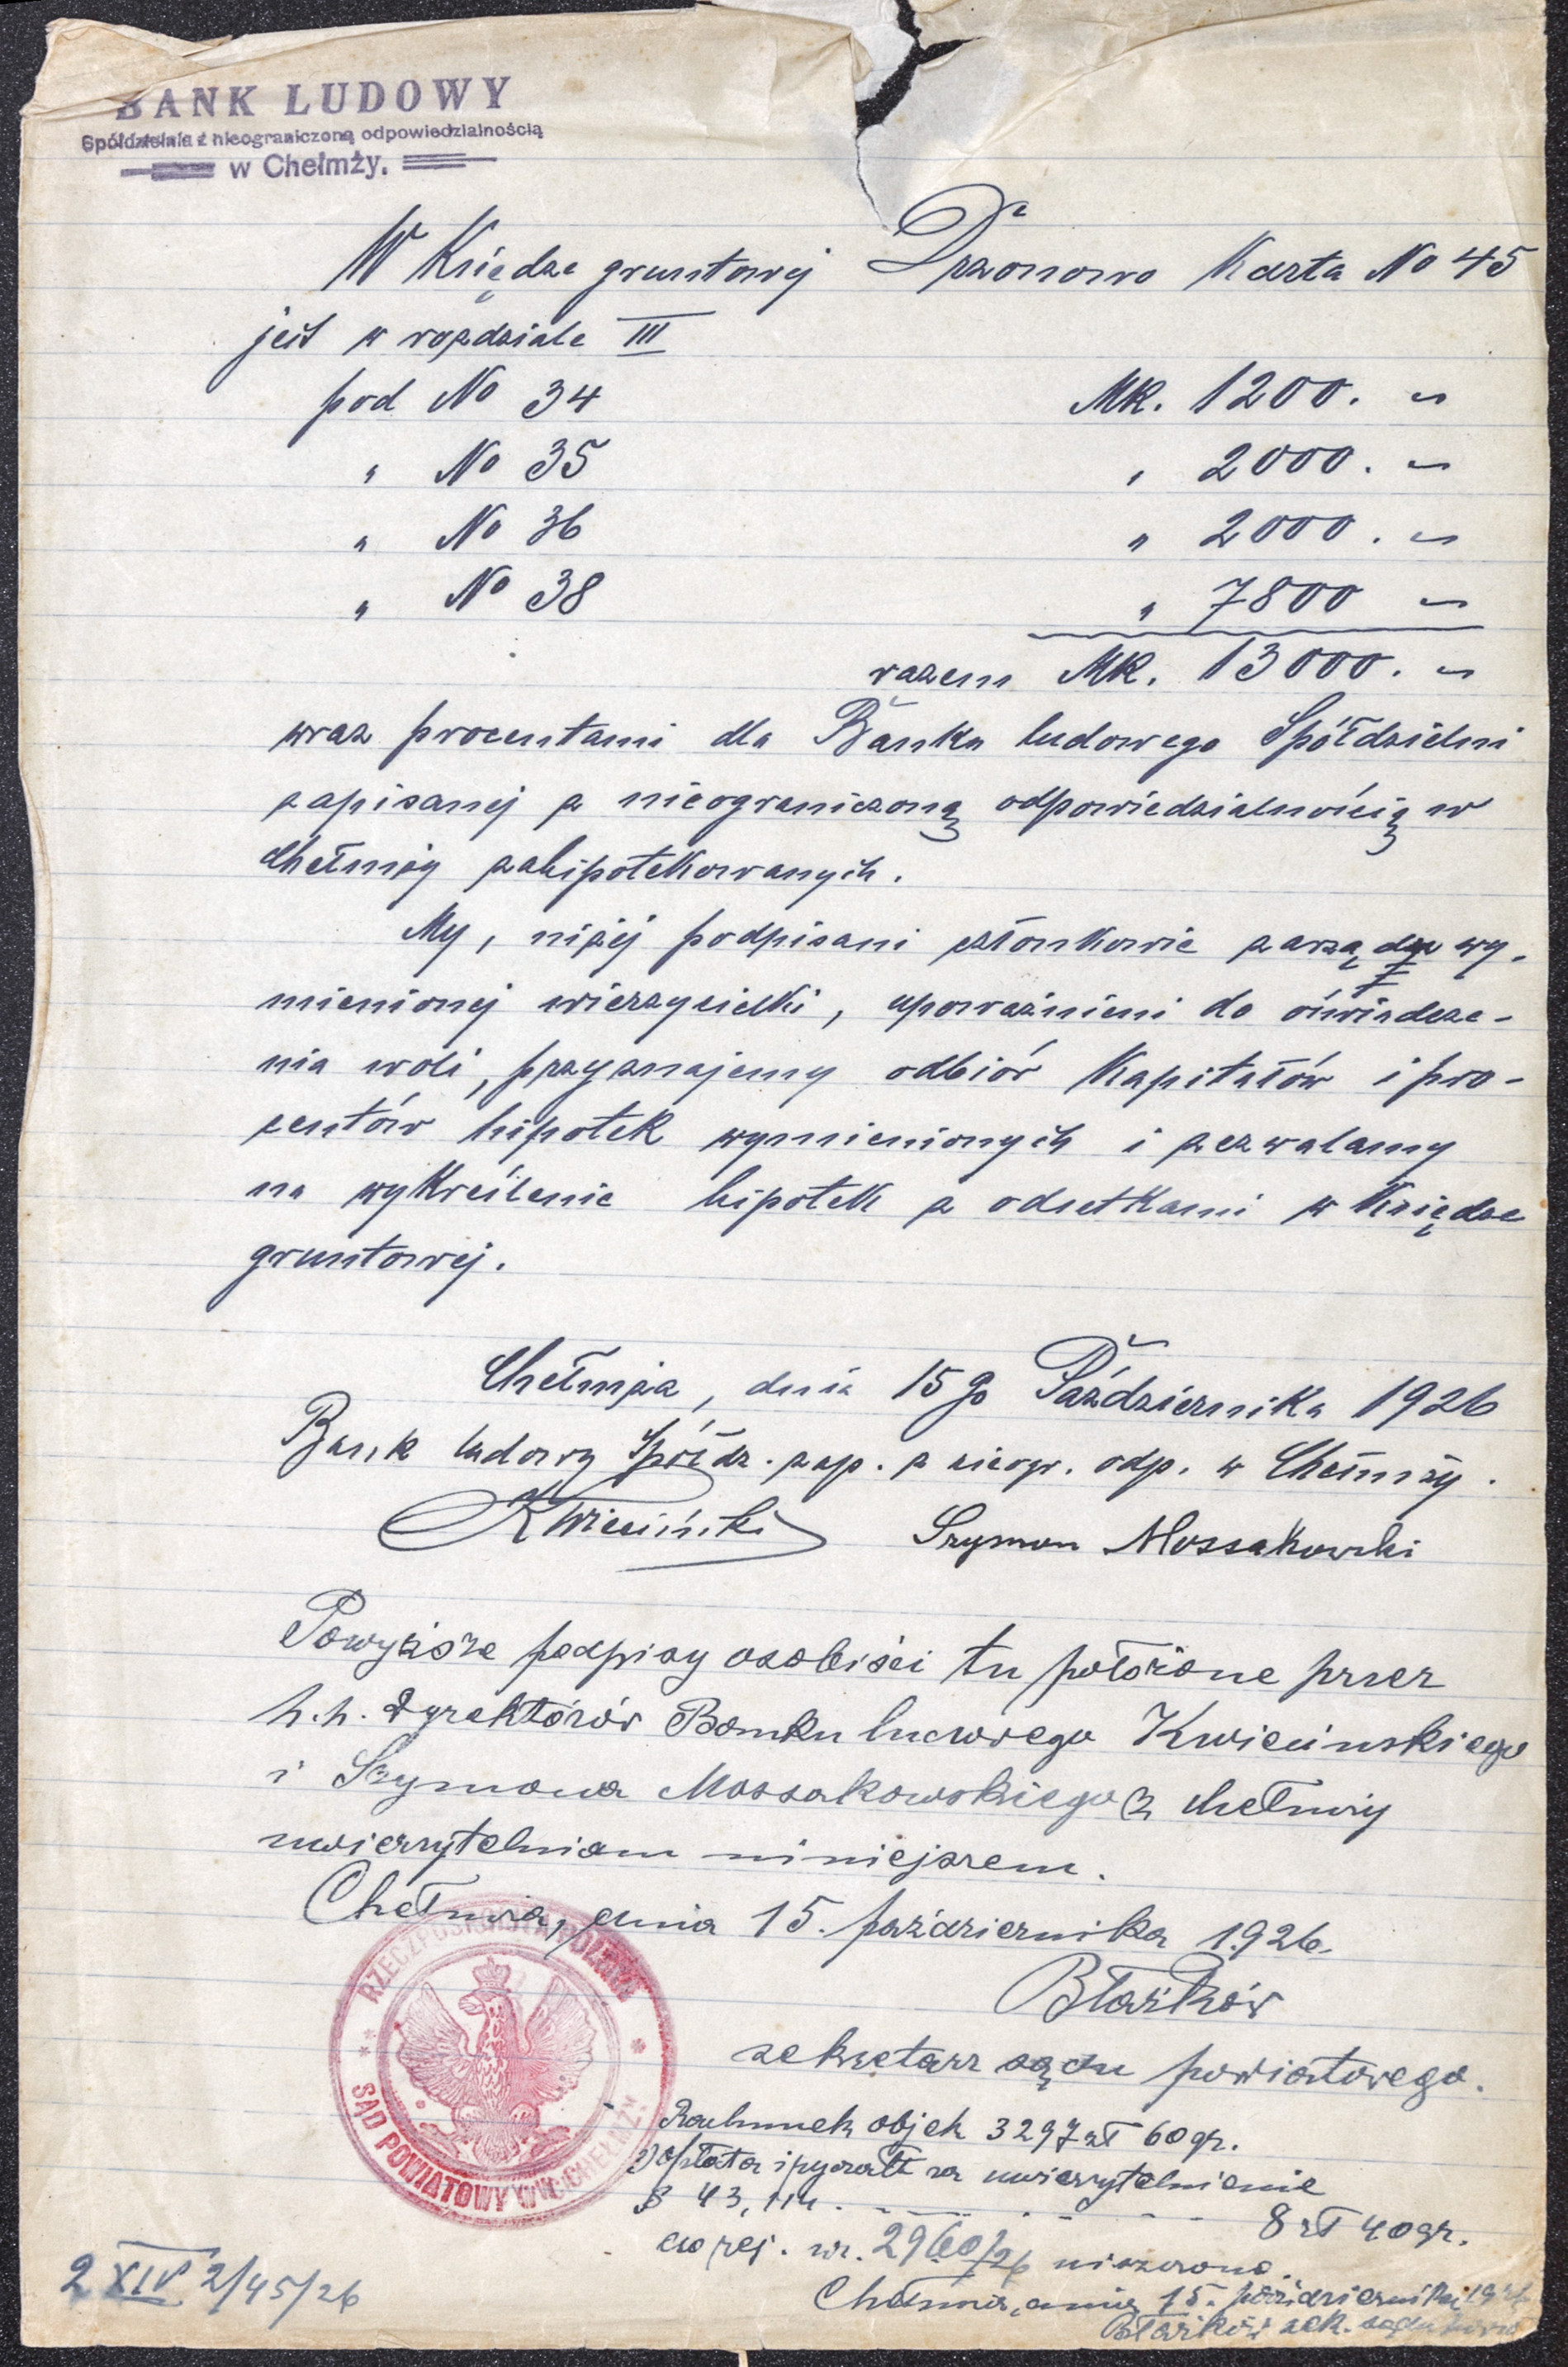 BANK LUDOWY
Spółdzielnia z nieograniczoną odpowiedzialnością
w Chełmży.
W Księdze gruntowej Drzonowo Karta No 45
jest w rozdziale III
pod No 34 Mk. 1200. "
" No 35 " 2000. "
" No 36 " 2000. "
" No 38 " 7800 "
razem Mk. 13000. "
wraz procentami dla Banku ludowego Spółdzielni
zapisanej z nieograniczoną odpowiedzialnością w
Chełmży zahipotekowanych.
My, niżej podpisani członkowie zarządu wy-
mienionej wierzycielki, upoważnieni do oświadcze-
nia woli, przyznajemy odbiór Kapitałów i pro-
centów hipotek wymienionych i zezwalamy
na wykreślenie hipotek z odsetkami w Księdze
gruntowej.
Chełmża, dnia 15go Października 1926
Bank ludowy Spółdz. zap. z nieogr. odp. w Chełmży.
Kwieciński Szymon Mossakowski
Powyższe podpisy osobiści tu położone przez
p.p. dyrektórów Banku ludowego Kwiecinskiego
i Szymona Mossakowskiego z Chełmży
uwierzytelniam niniejszem.
Chełmża, dnia 15. października 1926.
Błażków
sekretarz sądu powiatowego.
RZECZPOSPOLITA POLSKA
SĄD POWIATOWY W CHEŁMŻY
Rachunek objek 3297 zł 60 gr.
Opłata za uwierzytelnienie
§ 43, 114. - - - - 8 zł 40 gr.
do rej. nr. 2960/26 uiszczono.
Chełmża, dnia 15. października 1926
Błażków sek. sądu
2 XIV 2/45/26